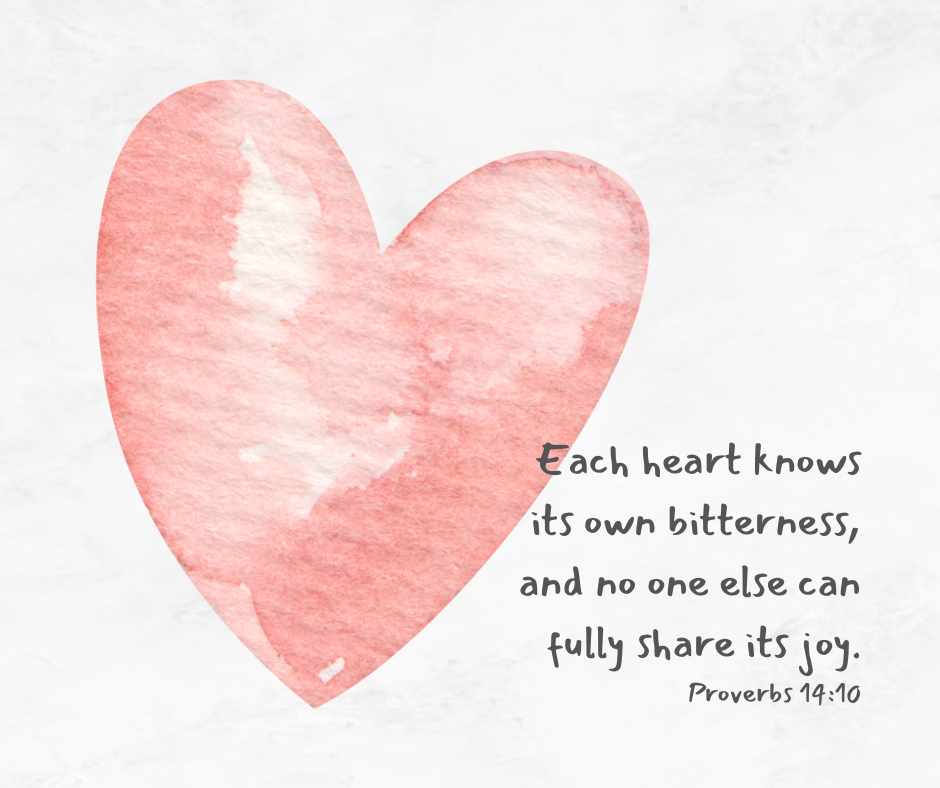 Each heart knows
its own bitterness,
and no one else can
fully share its joy.
Proverbs 14:10